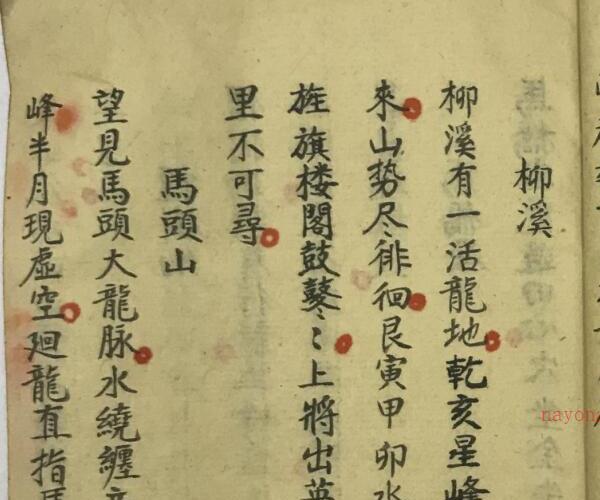 柳溪
柳溪有一活龍地乾亥星峰
來山勢尽徘徊艮寅甲卯水
旌旗楼閣鼓鼕〻上將出英
里不可尋
馬頭山
望見馬頭大龍脉水繞纏
峰半月現虛空廻龍直指馬
nayon